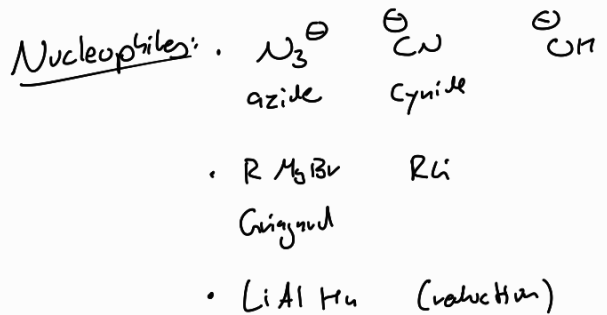 Nucleophiles: · N₃⊖ ⊖CN ⊖OH
azide Cynide
· R MgBr RLi
Grignard
· LiAlH₄ (reduction)